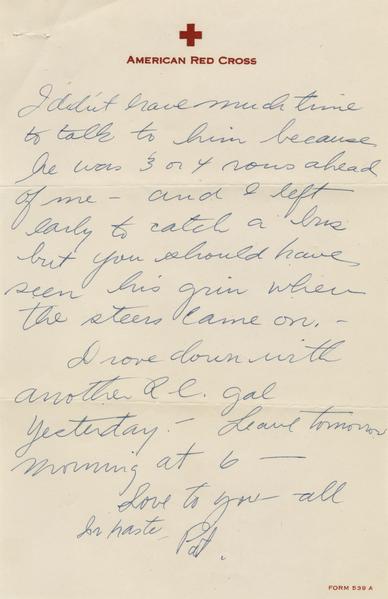 AMERICAN RED CROSS
I didn't have much time
to talk to him because
he was 3 or 4 rows ahead
of me - and I left
early to catch a bus
but you should have
seen his grin when
the steers came on. -
Drove down with
another R.C. gal
yesterday. - Leave tomorrow
morning at 6 -
Love to you - all
In haste,
Pat.
FORM 539 A